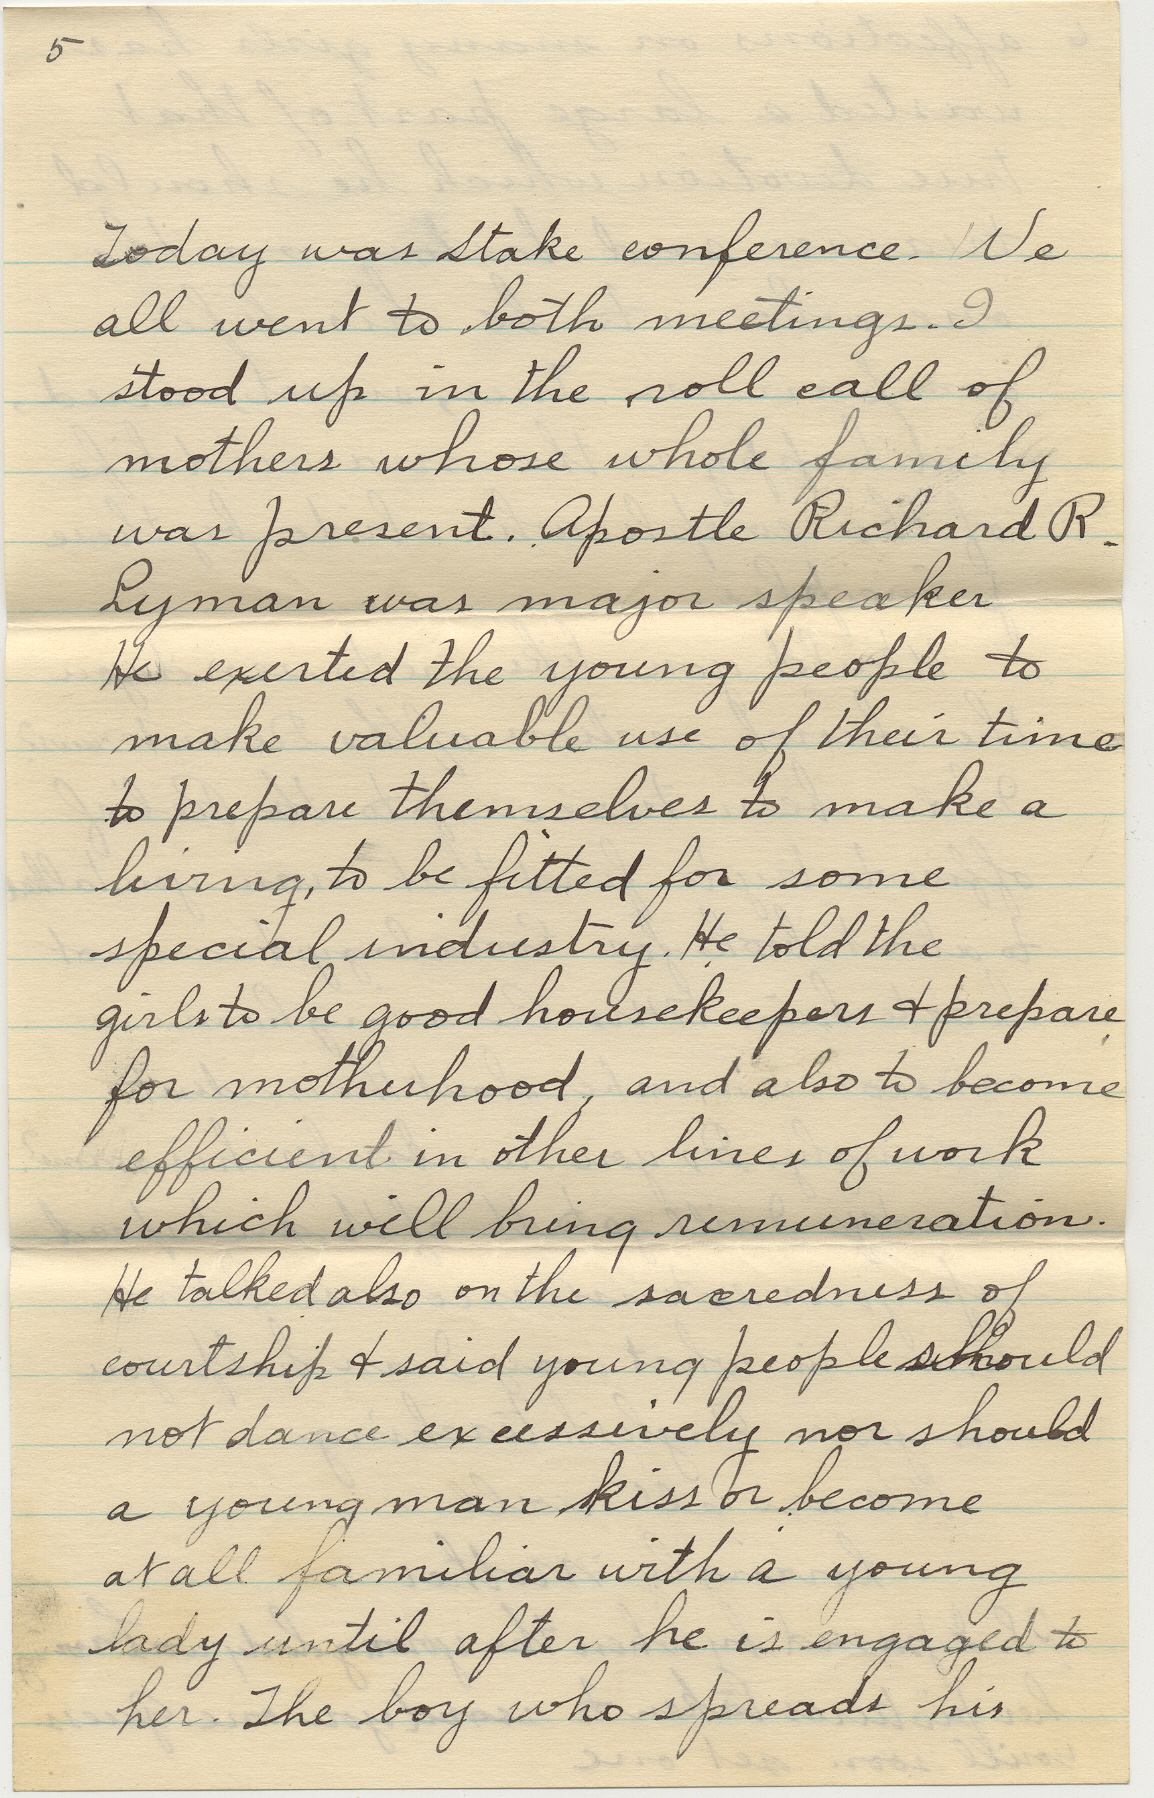 5
Today was Stake conference. We
all went to both meetings. I
stood up in the roll call of
mothers whose whole family
was present. Apostle Richard R.
Lyman was major speaker
He exerted the young people to
make valuable use of their time
to prepare themselves to make a
living, to be fitted for some
special industry. He told the
girls to be good housekeepers & prepare
for motherhood, and also to become
efficient in other lines of work
which will bring remuneration.
He talked also on the sacredness of
courtship & said young people should
not dance excessively nor should
a young man kiss or become
at all familiar with a young
lady until after he is engaged to
her. The boy who spreads his